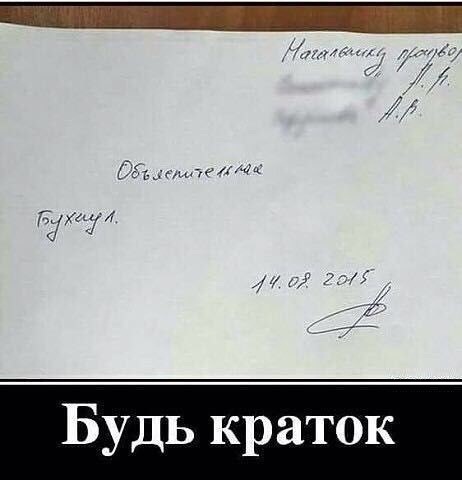 Начальнику произво
А.П.
А.В.
Объяснительная
Бухнул.
14.08.2015
Будь краток